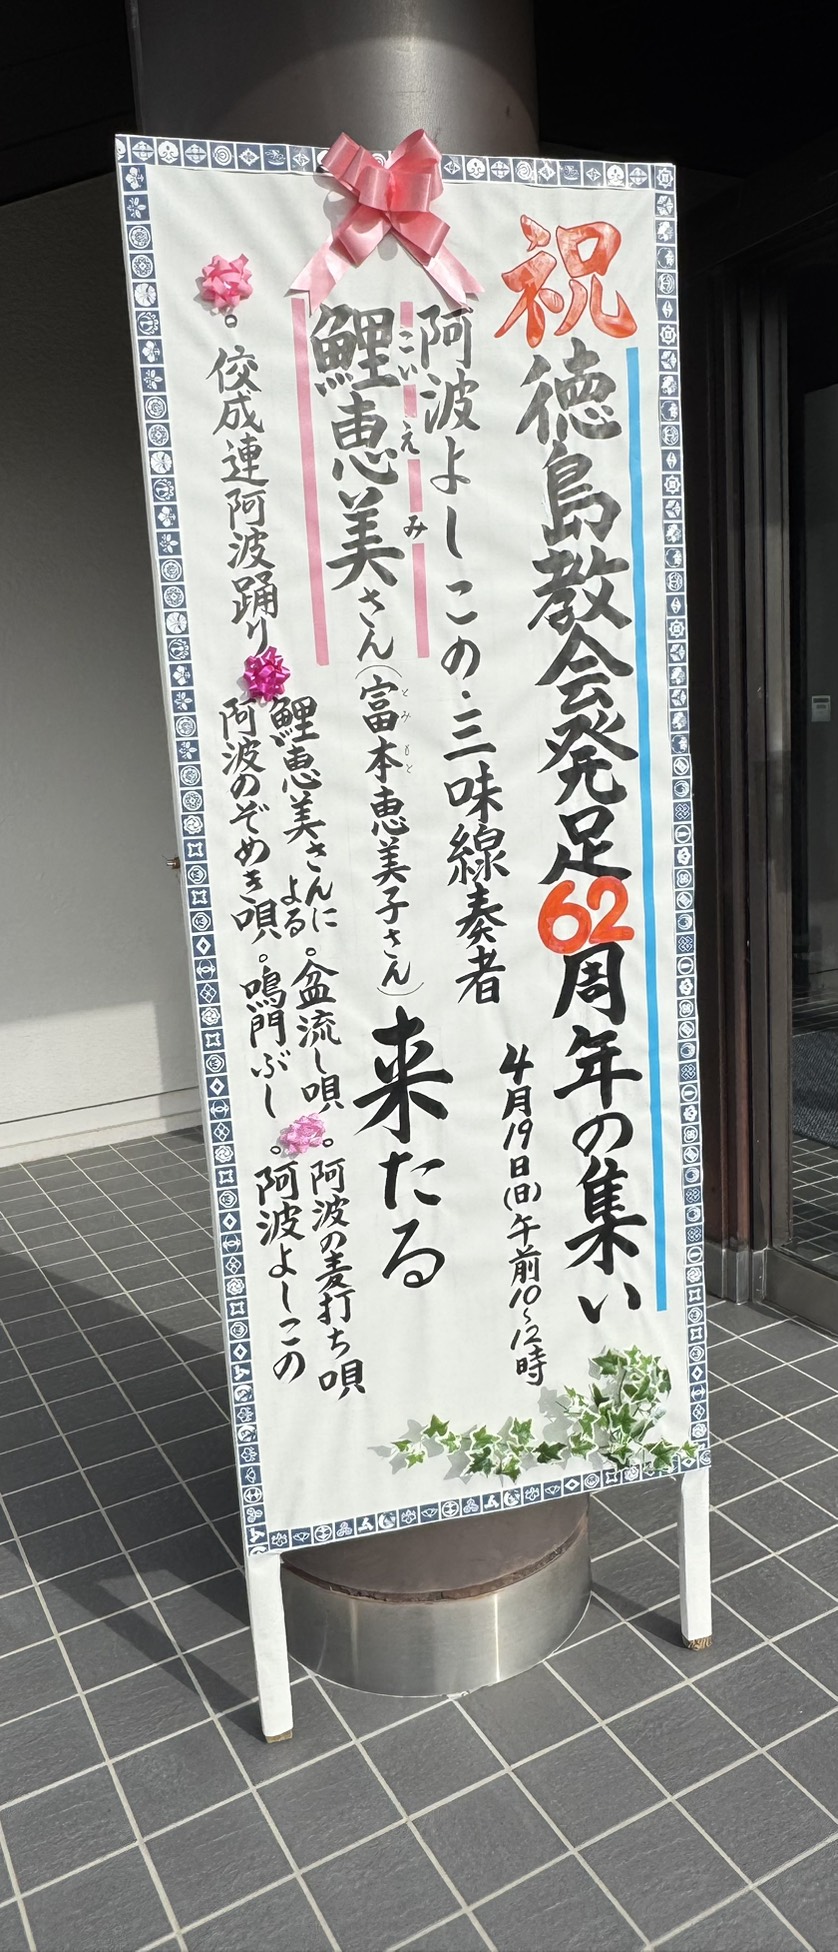 祝
徳島教会発足62周年の集い
4月19日(日)午前10〜12時
阿波よしこの・三味線奏者
鯉恵美さん(富本恵美子さん)来たる
こい え み
とみ もと
。佼成連阿波踊り
鯉恵美さんによる
。盆流し唄
。阿波の麦打ち唄
阿波のぞめき唄
。鳴門ぶし
。阿波よしこの